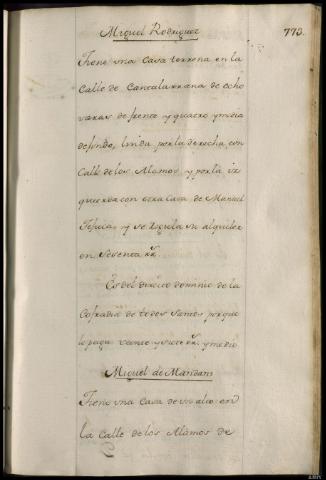 Miguel Rodriguez
773.
Tiene una Casa terrena en la
Calle de Cantalarrana de ocho
varas de frente y quatro y media
de fondo, linda por la derecha, con
Calle de los Alamos y por la iz
quierda con otra Casa de Manuel
y se regula su alquiler
en Sesenta rr.s
Es del directo dominio de la
Cofradia de todos Santos porque
le paga veinte y siete rr.s y medio
Miguel de
Tiene una Casa de un alto en
la Calle de los Alamos de